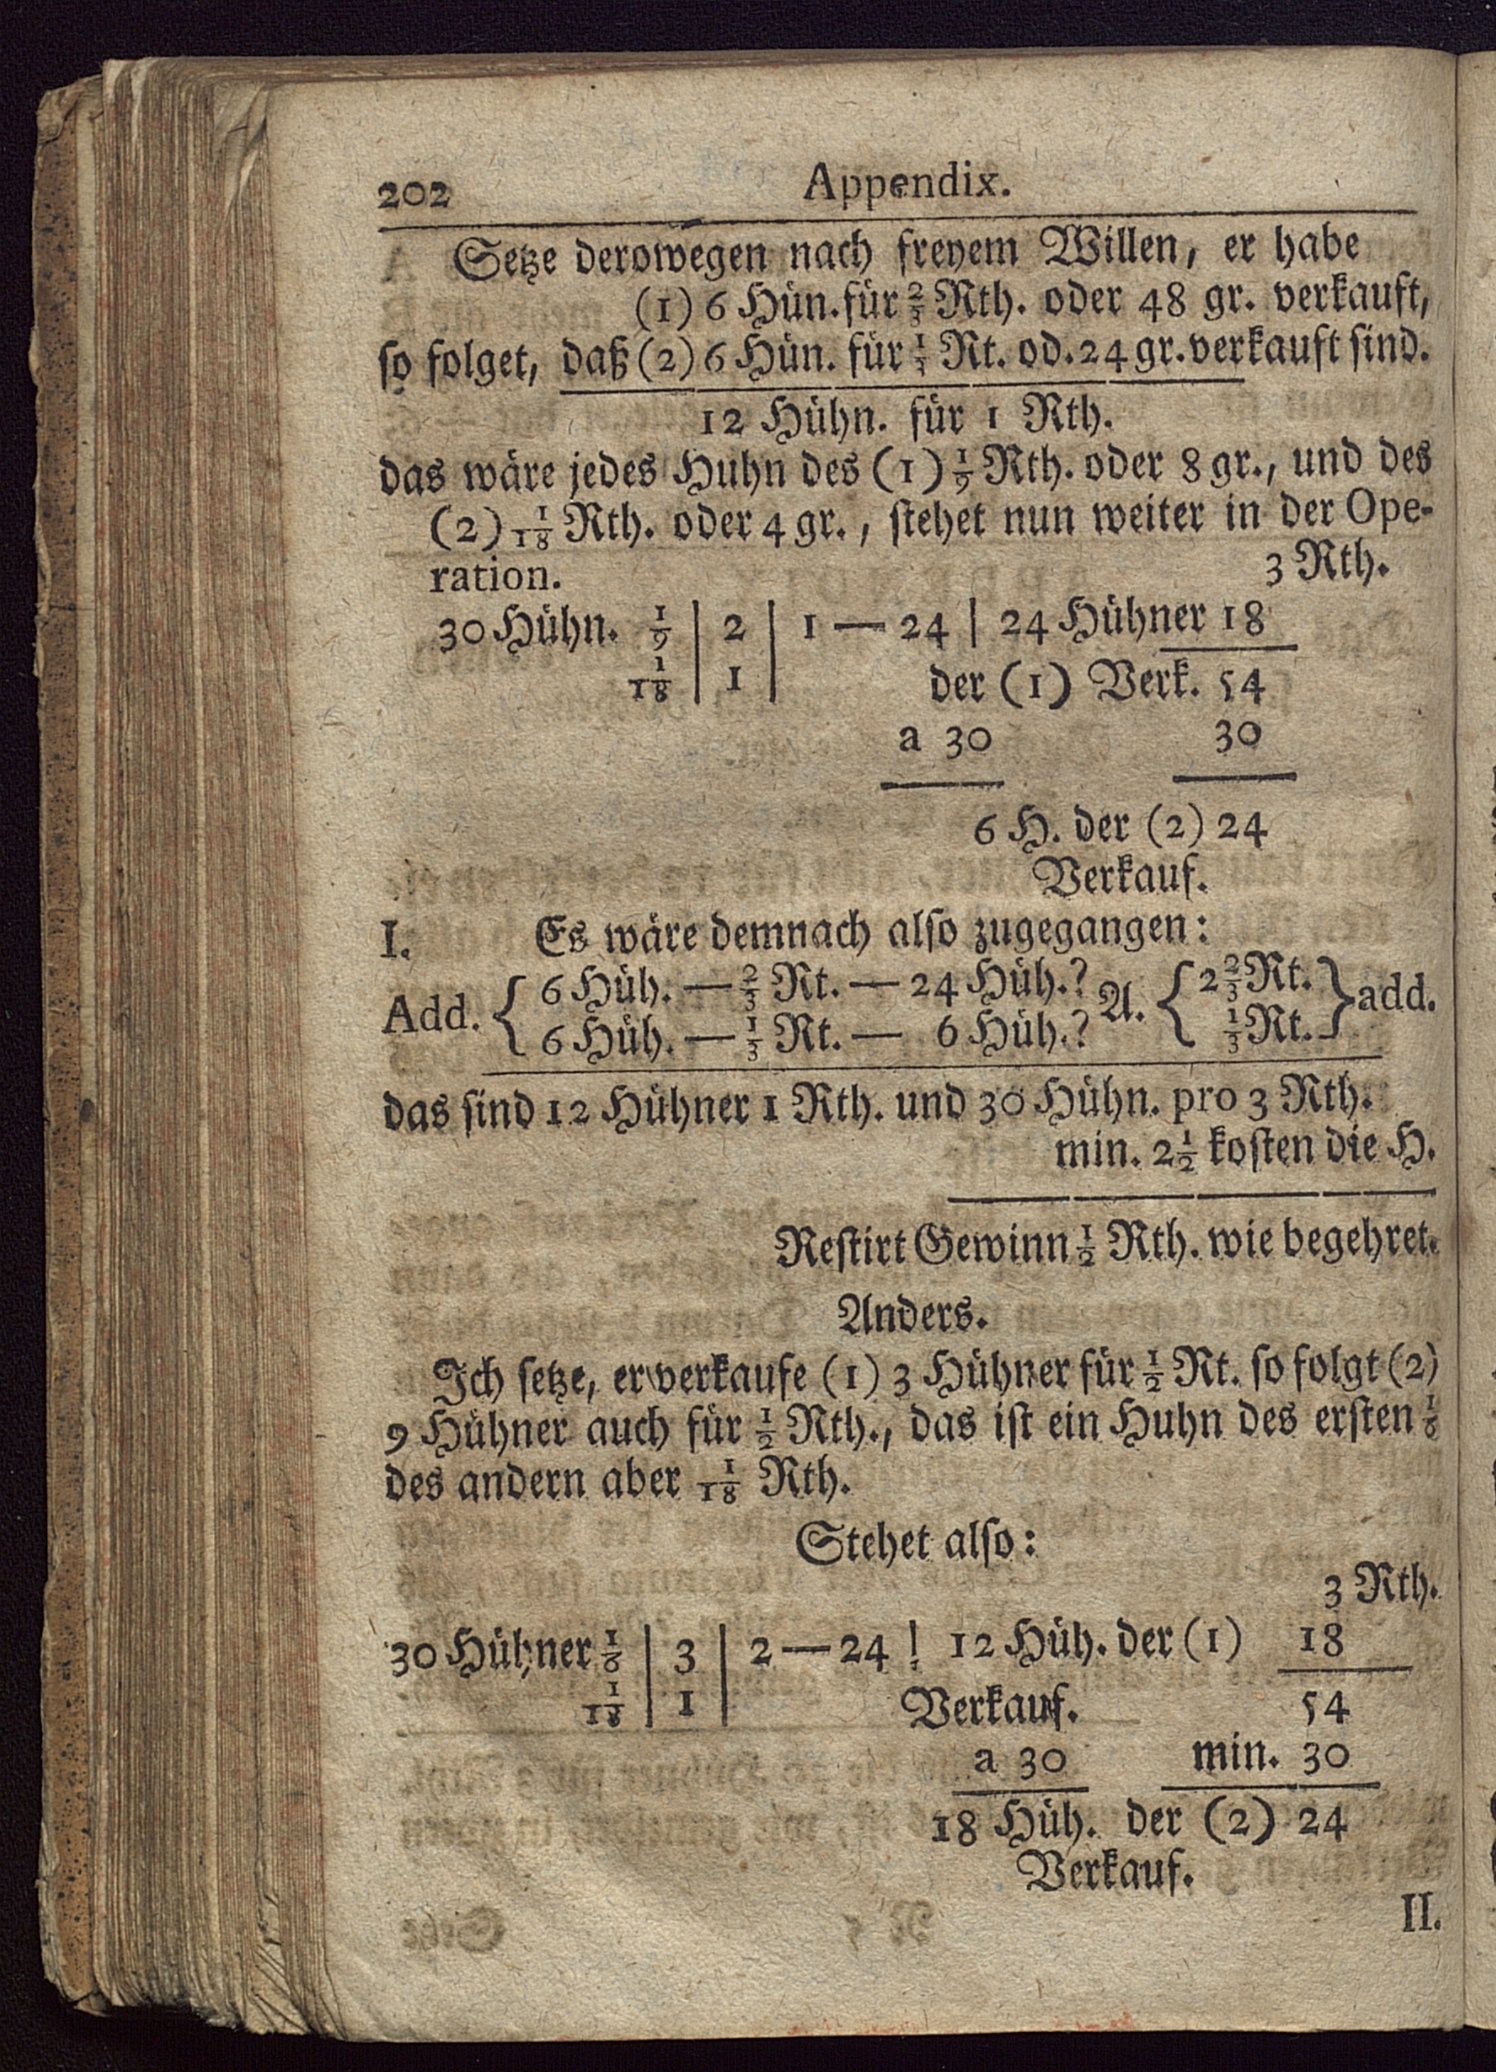 202 Appendix.
Setze derowegen nach freyem Willen, er habe
(1) 6 Hün. für 2/3 Rth. oder 48 gr. verkauft,
so folget, daß (2) 6 Hün. für 1/3 Rt. od. 24 gr. verkauft sind.
12 Hühn. für 1 Rth.
das wäre jedes Huhn des (1) 1/9 Rth. oder 8 gr., und des
(2) 1/18 Rth. oder 4 gr., stehet nun weiter in der Ope-
ration. 3 Rth.
30 Hühn. 1/9 | 2 | 1 — 24 | 24 Hühner 18
1/18 | 1 | der (1) Verk. 54
a 30 30
6 H. der (2) 24
Verkauf.
I. Es wäre demnach also zugegangen:
Add. { 6 Hüh. — 2/3 Rt. — 24 Hüh.? A. { 2 2/3 Rt. } add.
6 Hüh. — 1/3 Rt. — 6 Hüh.? 1/3 Rt.
das sind 12 Hühner 1 Rth. und 30 Hühn. pro 3 Rth.
min. 2 1/2 kosten die H.
Restirt Gewinn 1/2 Rth. wie begehret.
Anders.
Ich setze, er verkaufe (1) 3 Hühner für 1/2 Rt. so folgt (2)
9 Hühner auch für 1/2 Rth., das ist ein Huhn des ersten 1/6
des andern aber 1/18 Rth.
Stehet also:
3 Rth.
30 Hühner 1/6 | 3 | 2 — 24 | 12 Hüh. der (1) 18
1/18 | 1 | Verkauf. 54
a 30 min. 30
18 Hüh. der (2) 24
Verkauf.
II.